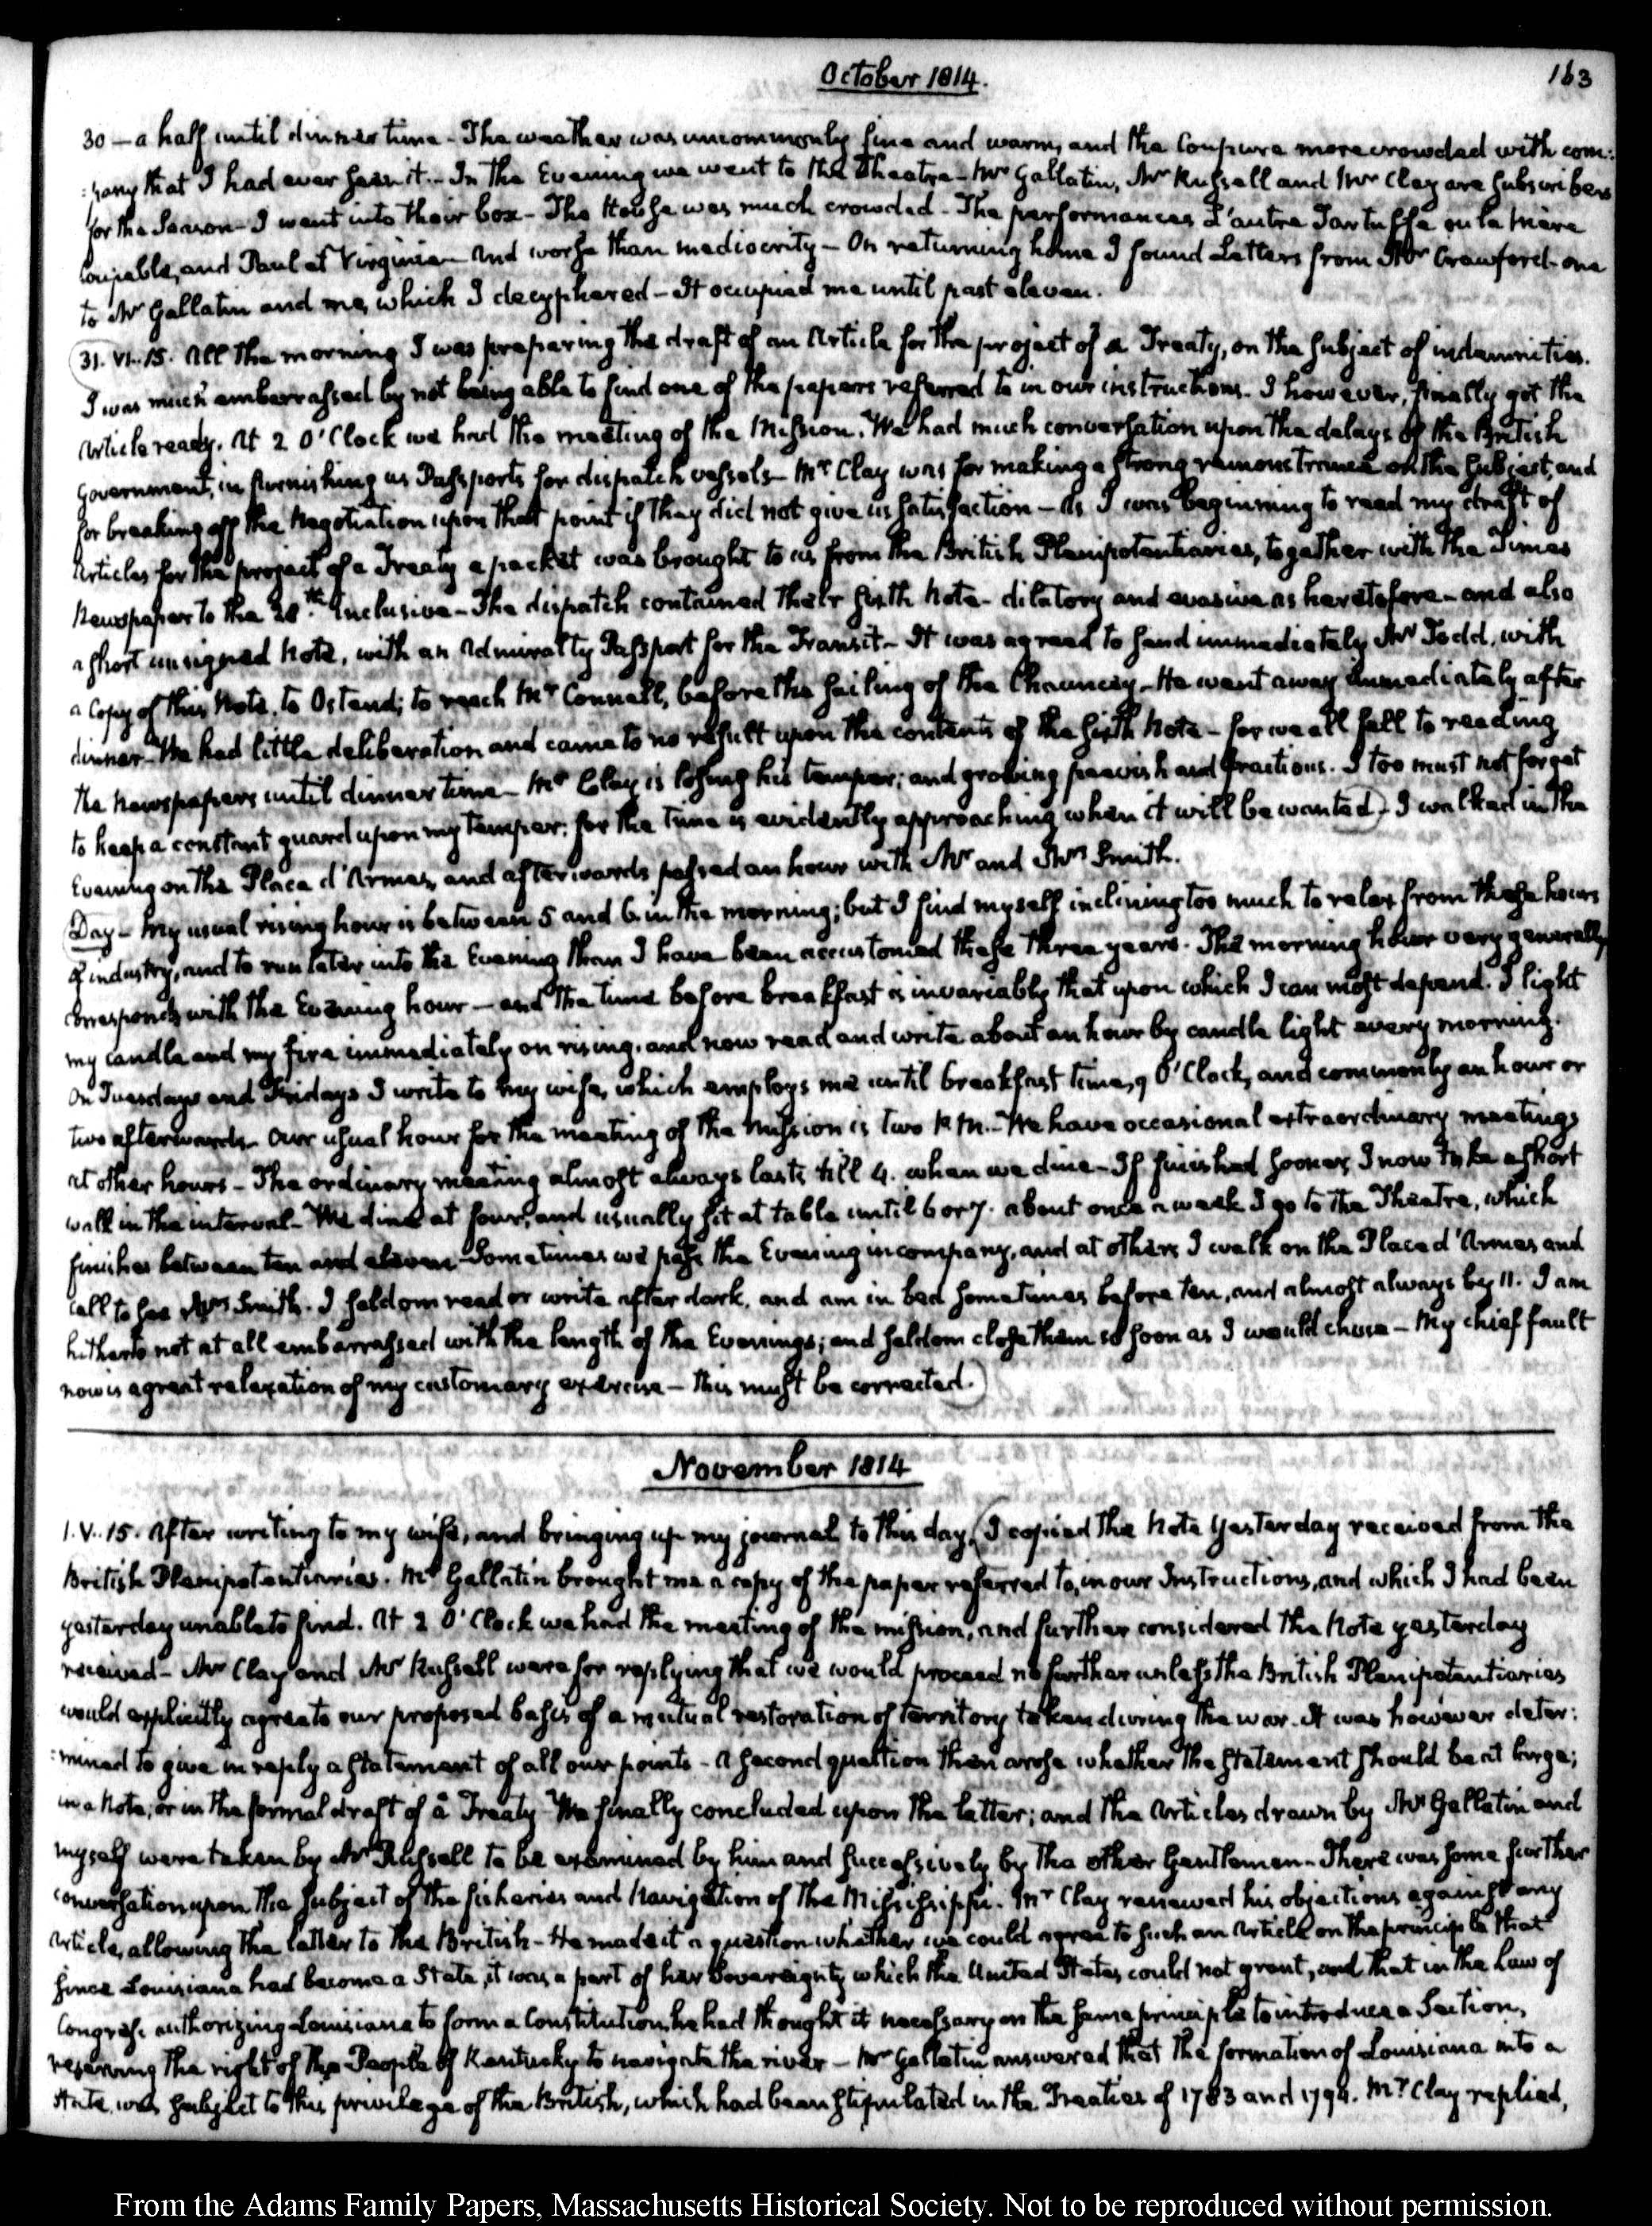 October 1814.
163
30 — a half until dinner time - The weather was uncommonly fine and warm, and the Coupure more crowded with com:
:pany that I had ever seen it.- In the Evening we went to the Theatre - Mr Gallatin, Mr Russell and Mr Clay are subscribers
for the Season - I went into their box - The House was much crowded - The performances L'autre Tartuffe ou la Mère
Coupable, and Paul et Virginie - And worse than mediocrity - On returning home I found Letters from Mr Crawford - one
to Mr Gallatin and me, which I decyphered - It occupied me until past eleven.
31. VI. 15. All the morning I was preparing the draft of an Article for the project of a Treaty, on the subject of indemnities.
I was much embarrassed by not being able to find one of the papers referred to in our instructions. I however, finally got the
Article ready. At 2 O'Clock we had the meeting of the Mission. We had much conversation upon the delays of the British
Government, in furnishing us Passports for dispatch vessels - Mr Clay was for making a strong remonstrance on the subject, and
for breaking off the Negotiation upon that point if they did not give us satisfaction - As I was beginning to read my draft of
Articles for the project of a Treaty a packet was brought to us from the British Plenipotentiaries, together with the Times
Newspaper to the 28th. inclusive - The dispatch contained their sixth Note - dilatory and evasive as heretofore - and also
a short unsigned Note, with an Admiralty Passport for the Transit - It was agreed to send immediately Mr Todd, with
a Copy of this Note, to Ostend; to reach Mr Connell, before the sailing of the Chauncey - He went away immediately after
dinner - We had little deliberation and came to no result upon the contents of the sixth Note - for we all fell to reading
the Newspapers until dinner time - Mr Clay is losing his temper; and growing peevish and fractious. I too must not forget
to keep a constant guard upon my temper; for the time is evidently approaching when it will be wanted) - I walked in the
Evening on the Place d'Armes, and afterwards passed an hour with Mr and Mrs Smith.
Day - My usual rising hour is between 5 and 6 in the morning; but I find myself inclining too much to relax from these hours
of industry, and to run later into the Evening than I have been accustomed these three years. The morning hour very generally
corresponds with the Evening hour — and the time before breakfast is invariably that upon which I can most depend. I light
my candle and my fire immediately on rising, and now read and write about an hour by candle light every morning.
On Tuesdays and Fridays I write to my wife, which employs me until breakfast time, 9 O'Clock, and commonly an hour or
two afterwards. Our usual hour for the meeting of the Mission is two P.M. - We have occasional extraordinary meetings
at other hours - The ordinary meeting almost always lasts till 4. when we dine - If finished sooner, I now take a short
walk in the interval - We dine at four, and usually sit at table until 6 or 7. about once a week I go to the Theatre, which
finishes between ten and eleven - Sometimes we pass the Evening in company, and at others I walk on the Place d'Armes and
call to see Mrs Smith. I seldom read or write after dark, and am in bed sometimes before ten, and almost always by 11. I am
hitherto not at all embarrassed with the length of the Evenings; and seldom close them so soon as I would chuse - My chief fault
now is a great relaxation of my customary exercise - this must be corrected.)
November 1814
1. V. 15. After writing to my wife, and bringing up my journal to this day, (I copied the Note yesterday received from the
British Plenipotentiaries. Mr Gallatin brought me a copy of the paper referred to, in our Instructions, and which I had been
yesterday unable to find. At 2 O'Clock we had the meeting of the mission, and further considered the Note yesterday
received - Mr Clay and Mr Russell were for replying that we would proceed no further unless the British Plenipotentiaries
would explicitly agree to our proposed basis of a mutual restoration of territory taken during the war. It was however deter:
:mined to give in reply a statement of all our points - A second question then arose whether the statement should be at large;
in a Note, or in the formal draft of a Treaty - We finally concluded upon the latter; and the Articles drawn by Mr Gallatin and
myself were taken by Mr Russell to be examined by him and successively by the other Gentlemen - There was some further
conversation upon the subject of the fisheries and Navigation of the Mississippi. Mr Clay renewed his objections against any
Article, allowing the latter to the British - He made it a question whether we could agree to such an Article on the principle that
since Louisiana had become a State, it was a part of her Sovereignty which the United States could not grant, and that in the Law of
Congress, authorizing Louisiana to form a Constitution, he had thought it necessary on the same principle to introduce a Section,
reserving the right of the People of Kentucky to navigate the river - Mr Gallatin answered that the formation of Louisiana into a
State, was subject to this privilege of the British, which had been stipulated in the Treaties of 1783 and 1794. Mr Clay replied,
From the Adams Family Papers, Massachusetts Historical Society. Not to be reproduced without permission.